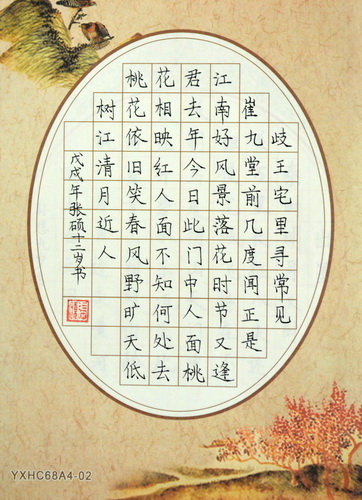 歧王宅里寻常见
崔九堂前几度闻正是
江南好风景落花时节又逢
君去年今日此门中人面桃
花相映红人面不知何处去
桃花依旧笑春风野旷天低
树江清月近人
戊戌年张硕十二岁书
YXHC68A4-02